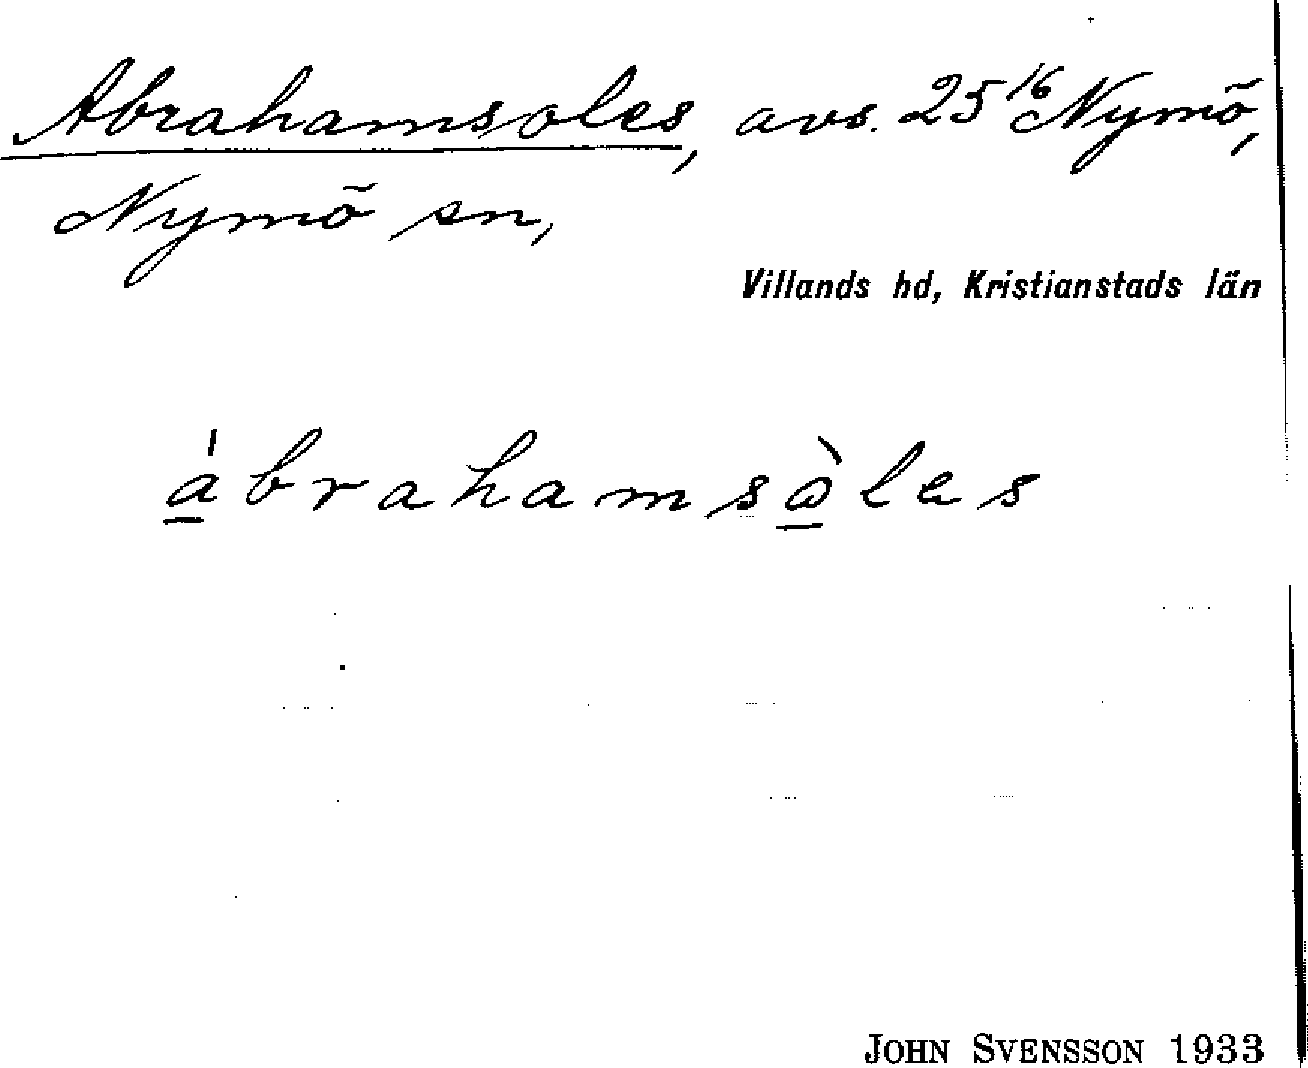 Abrahamsoles, avs. 25¹⁶ Nymö,
Nymö sn,
Villands hd, Kristianstads län
a̲̍brahamsò̲les
JOHN SVENSSON 1933